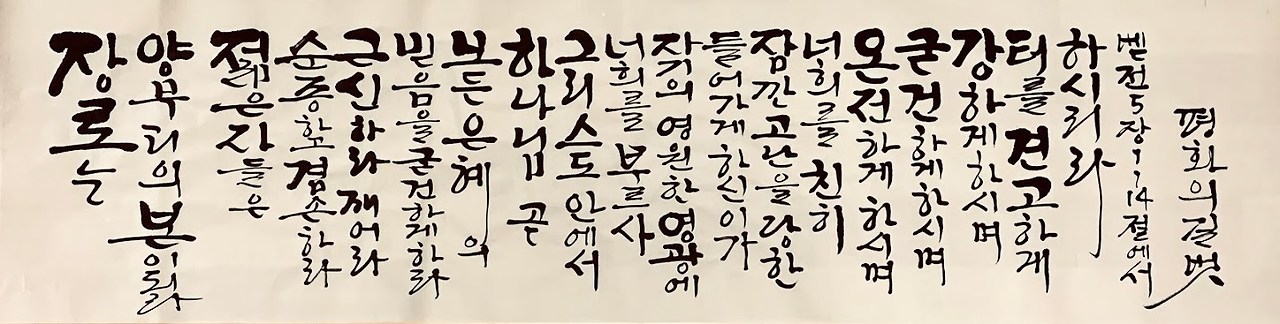 장로는
양무리의 본이되라
젊은 자들은
순종하고 겸손하라
근신하라 깨어라
믿음을 굳건하게하라
모든 은혜의
하나님 곧
그리스도 안에서
너희를 부르사
자기의 영원한 영광에
들어가게 하신 이가
잠깐 고난을 당한
너희를 친히
온전하게 하시며
굳건하게 하시며
강하게 하시며
터를 견고하게
하시리라
벧전5장1-14절에서
평화의 길벗